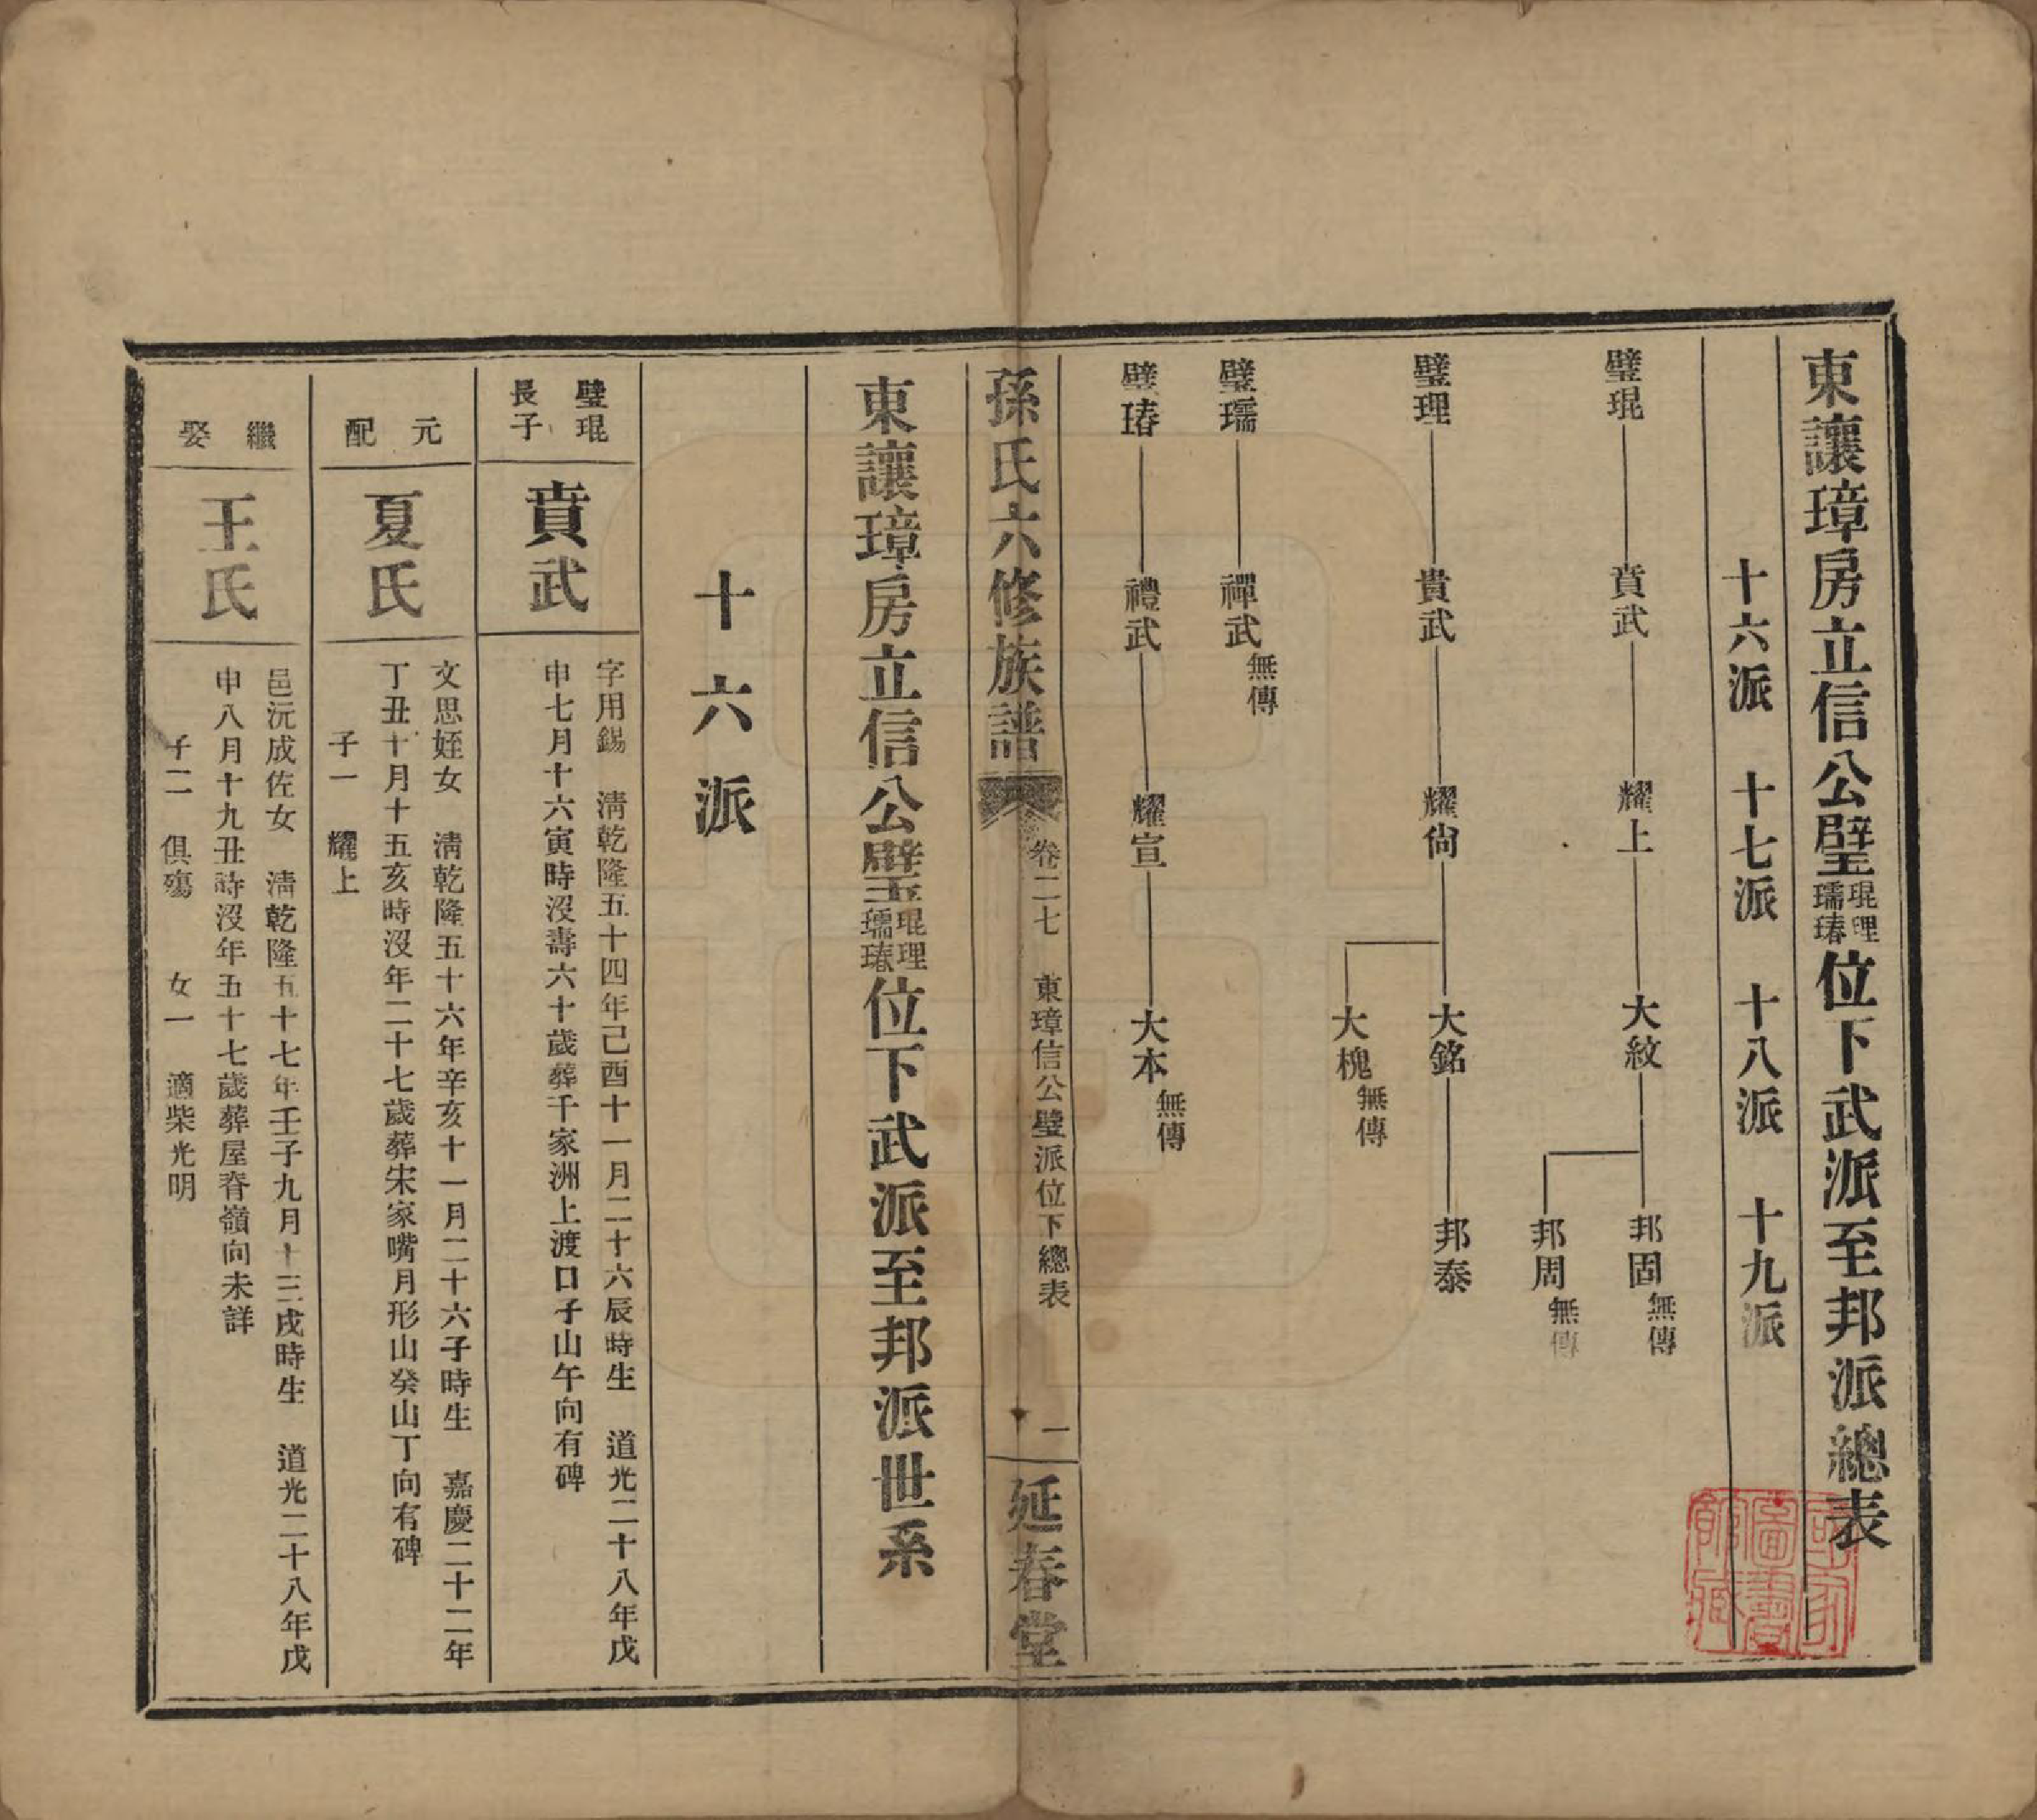 東讓璋房立信公璧琨理瓀瑃位下武派至邦派總表
十六派　十七派　十八派　十九派
璧琨　賁武　耀上　大紋　邦固無傳
邦周無傳
璧理　貴武　耀尙　大銘　邦泰
大槐無傳
璧瓀　禪武無傳
璧瑃　禮武　耀宣　大本無傳
孫氏六修族譜　卷二七　東璋信公璧派位下總表　一　延春堂
東讓璋房立信公璧琨理瓀瑃位下武派至邦派世系
十六派
璧琨
長子
賁武
字用錫　清乾隆五十四年己酉十一月二十六辰時生　道光二十八年戊
申七月十六寅時沒壽六十歲葬千家洲上渡口子山午向有碑
元配
夏氏
文思姪女　清乾隆五十六年辛亥十一月二十六子時生　嘉慶二十二年
丁丑十月十五亥時沒年二十七歲葬宋家嘴月形山癸山丁向有碑
子一　耀上
繼娶
王氏
邑沅成佐女　清乾隆五十七年壬子九月十三戌時生　道光二十八年戊
申八月十九丑時沒年五十七歲葬屋脊嶺向未詳
子二　俱殤　女一　適柴光明
國家圖書館藏